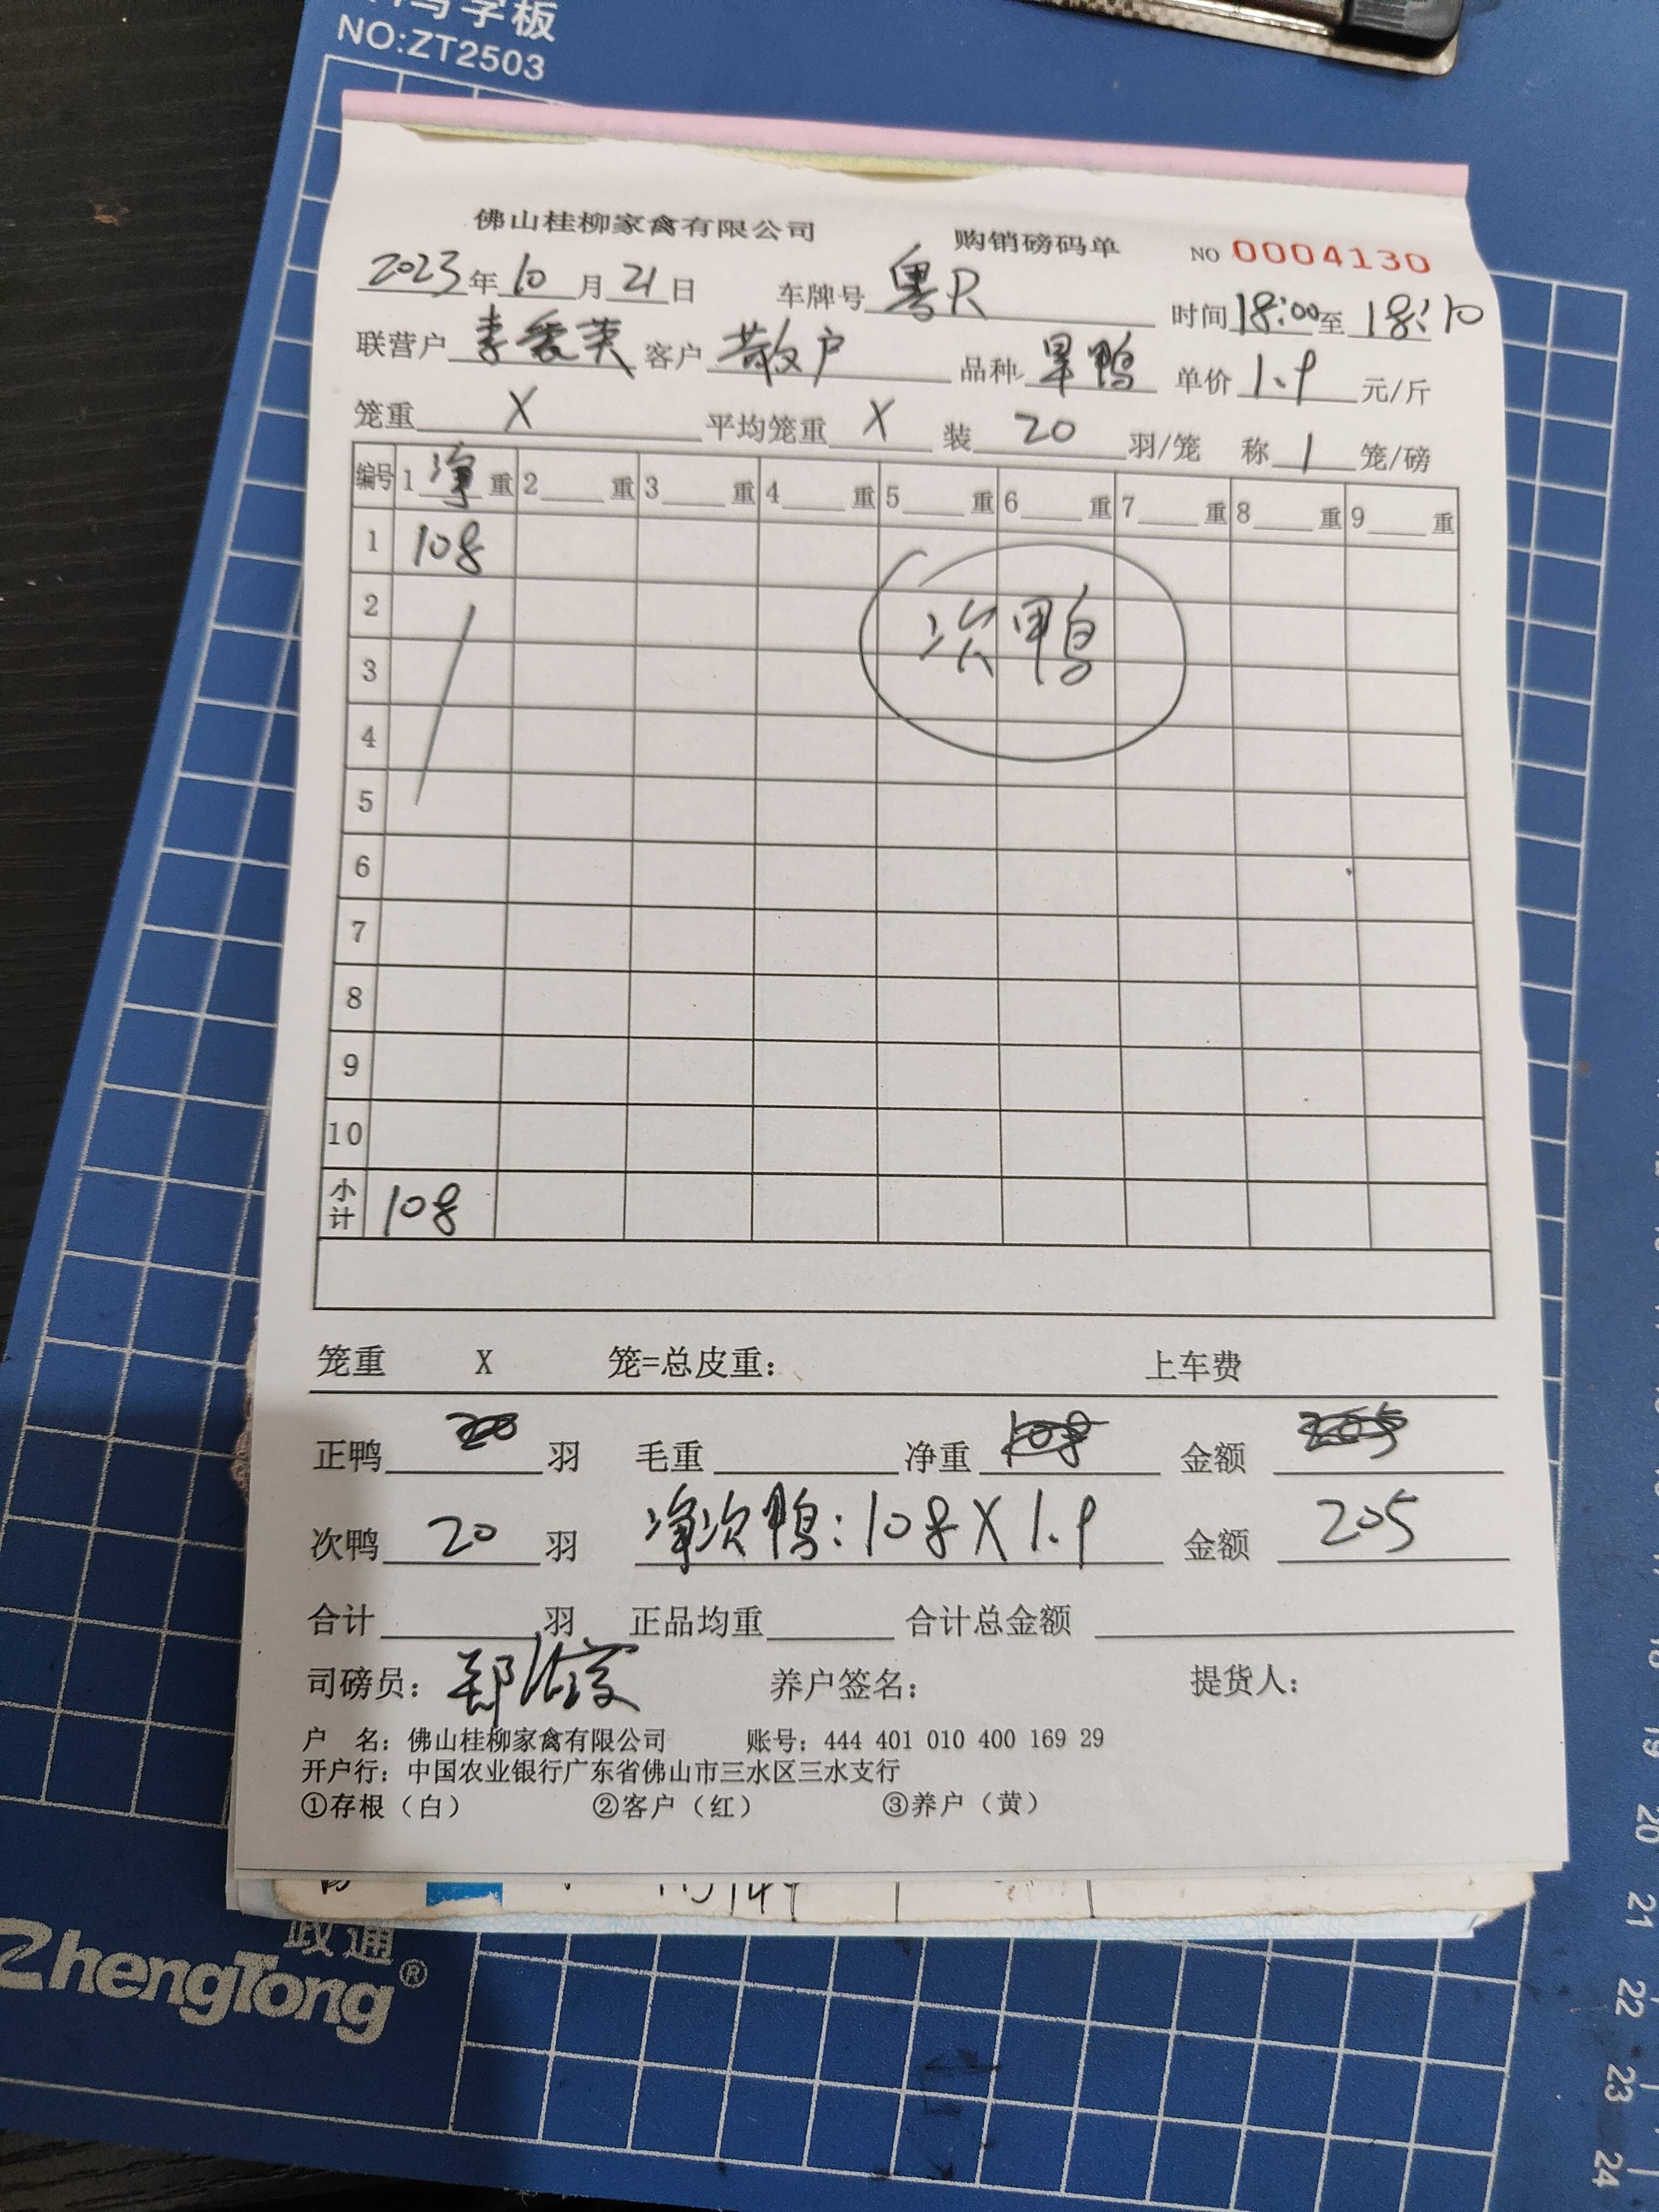 写字板
NO:ZT2503
佛山桂柳家禽有限公司 购销磅码单 NO 0004130
2023年10月21日 车牌号 粤R 时间18:00至18:10
联营户 李爱英 客户 散户 品种 旱鸭 单价 1.9 元/斤
笼重 X 平均笼重 X 装 20 羽/笼 称 1 笼/磅
编号 1 净 重 2 重 3 重 4 重 5 重 6 重 7 重 8 重 9 重
1 108
2 次鸭
3
4
5
6
7
8
9
10
小计 108
笼重 X 笼=总皮重： 上车费
正鸭 20 羽 毛重 净重 108 金额 205
次鸭 20 羽 净次鸭：108X1.9 金额 205
合计 羽 正品均重 合计总金额
司磅员： 郑 养户签名： 提货人：
户 名：佛山桂柳家禽有限公司 账号：444 401 010 400 169 29
开户行：中国农业银行广东省佛山市三水区三水支行
①存根（白） ②客户（红） ③养户（黄）
政通
ZhengTong®
18
19
20
21
22
23
24